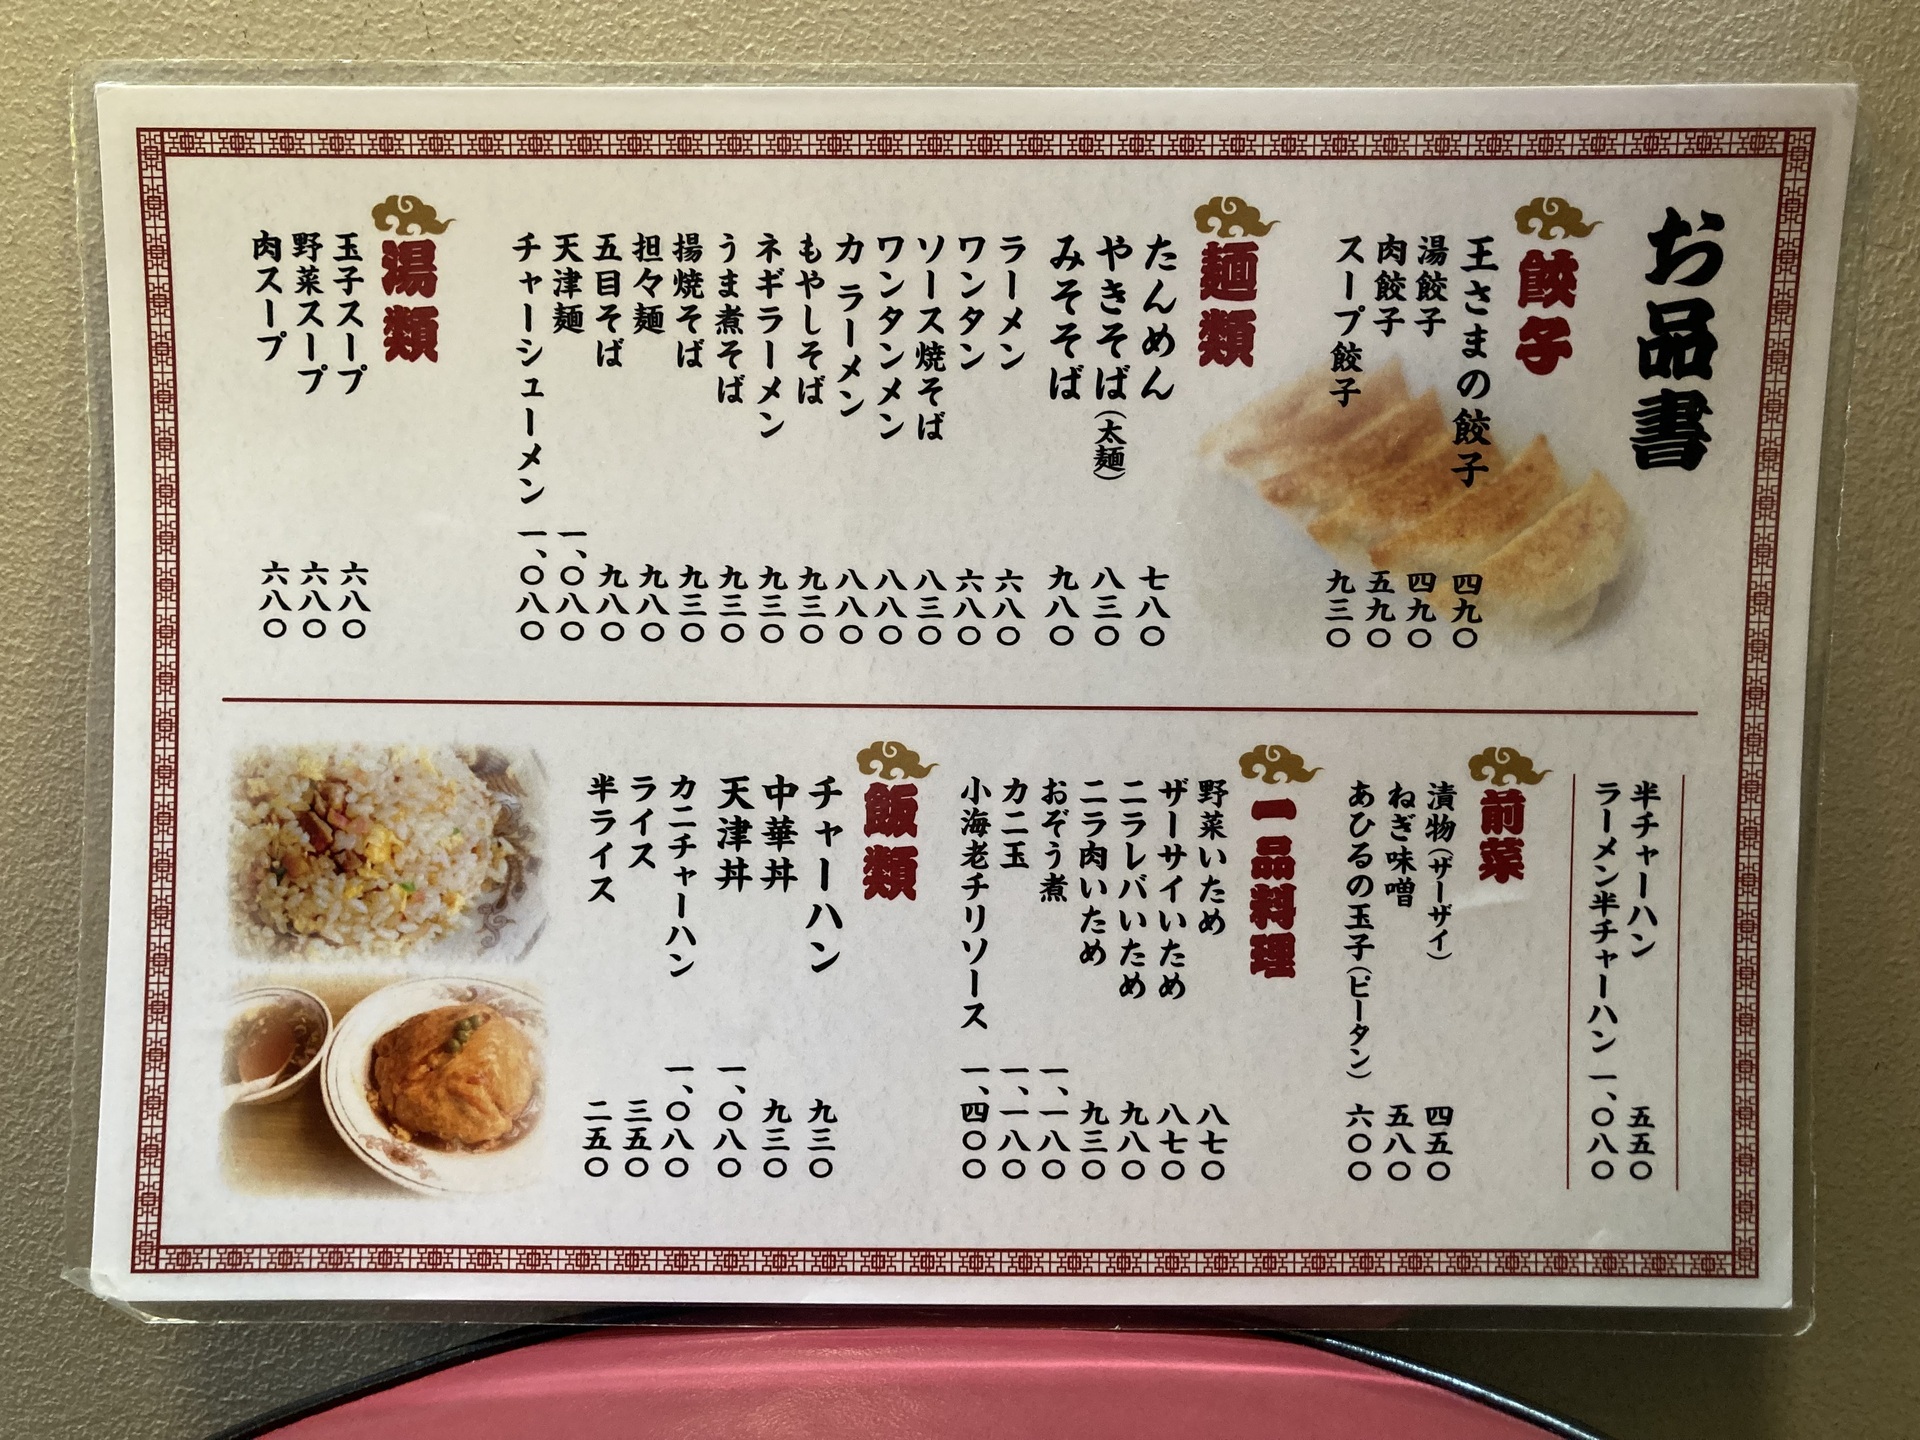 お品書
餃子
王さまの餃子 四九〇
湯餃子 四九〇
肉餃子 五九〇
スープ餃子 九三〇
麺類
たんめん 七八〇
やきそば(太麺) 八三〇
みそそば 九八〇
ラーメン 六八〇
ワンタン 六八〇
ソース焼そば 八三〇
ワンタンメン 八八〇
カラーメン 八八〇
もやしそば 九三〇
ネギラーメン 九三〇
うま煮そば 九三〇
揚焼そば 九三〇
担々麺 九八〇
五目そば 九八〇
天津麺 一、〇八〇
チャーシューメン 一、〇八〇
湯類
玉子スープ 六八〇
野菜スープ 六八〇
肉スープ 六八〇
半チャーハン 五五〇
ラーメン半チャーハン 一、〇八〇
前菜
漬物(ザーサイ) 四五〇
ねぎ味噌 五八〇
あひるの玉子(ピータン) 六〇〇
一品料理
野菜いため 八七〇
ザーサイいため 八七〇
ニラレバいため 九八〇
ニラ肉いため 九三〇
おぞう煮 一、一八〇
カニ玉 一、一八〇
小海老チリソース 一、四〇〇
飯類
チャーハン 九三〇
中華丼 九三〇
天津丼 一、〇八〇
カニチャーハン 一、〇八〇
ライス 三五〇
半ライス 二五〇